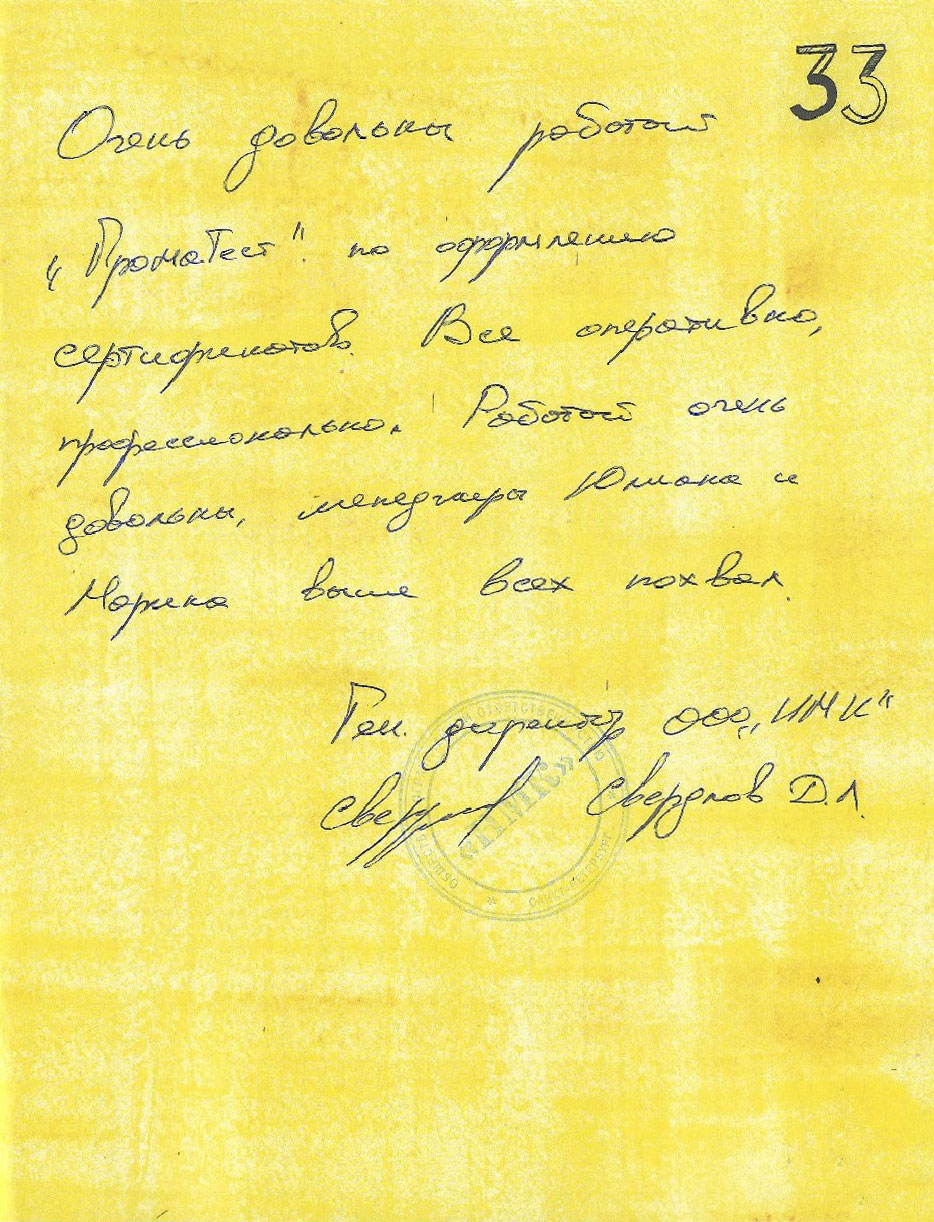 33
Очень довольны работой
„ПромаТест“ по оформлению
сертификатов. Все оперативно,
профессионально. Работой очень
довольны, менеджеры Юлиана и
Марина выше всех похвал.
Ген. директор ООО „ИМК“
Свердлов Д.Л.
«ИМК»